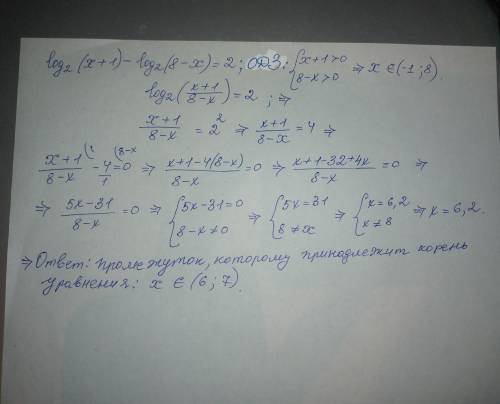 log₂(x+1) - log₂(8-x) = 2; ОДЗ: { x+1>0 8-x>0 ⇒ x ∈ (-1; 8).
log₂((x+1)/(8-x)) = 2; ⇒
(x+1)/(8-x) = 2² ⇒ (x+1)/(8-x) = 4 ⇒
(x+1)/(8-x) - 4/1 (8-x = 0 ⇒ (x+1-4(8-x))/(8-x) = 0 ⇒ (x+1-32+4x)/(8-x) = 0 ⇒
⇒ (5x-31)/(8-x) = 0 ⇒ { 5x-31=0 8-x≠0 ⇒ { 5x=31 8≠x ⇒ { x=6,2 x≠8 ⇒ x=6,2.
⇒ Ответ: промежуток, которому принадлежит корень
уравнения: x ∈ (6; 7).